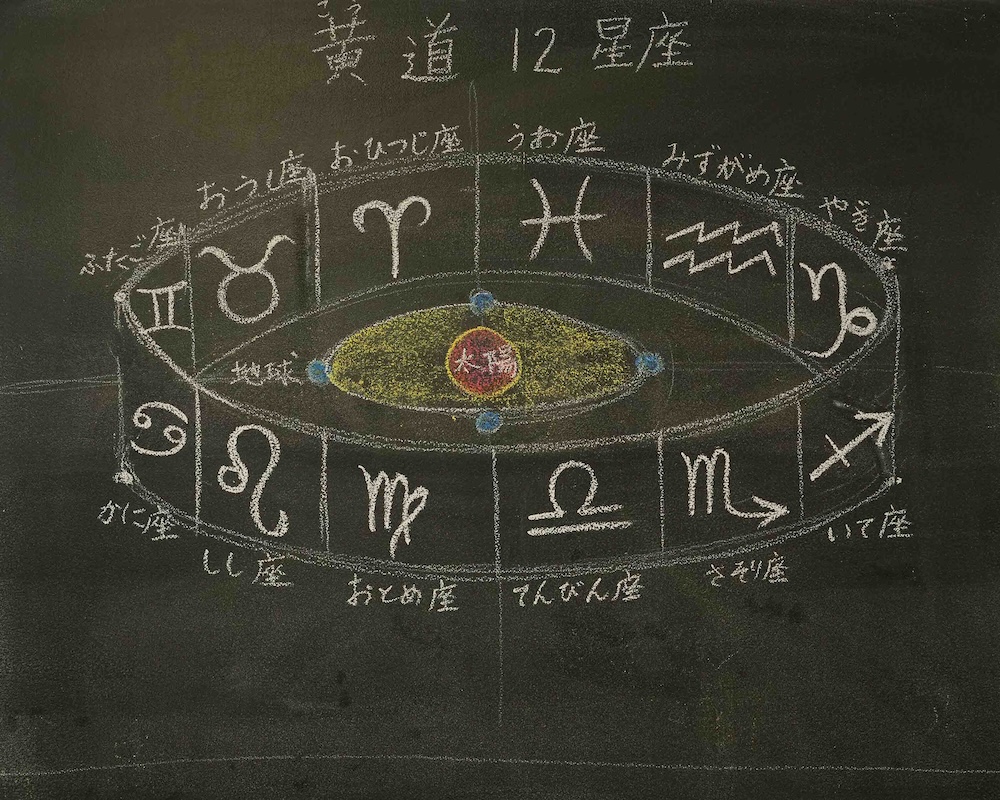 黄道 12 星座
おひつじ座
うお座
おうし座
みずがめ座
ふたご座
やぎ座
太陽
地球
かに座
いて座
しし座
おとめ座
てんびん座
さそり座